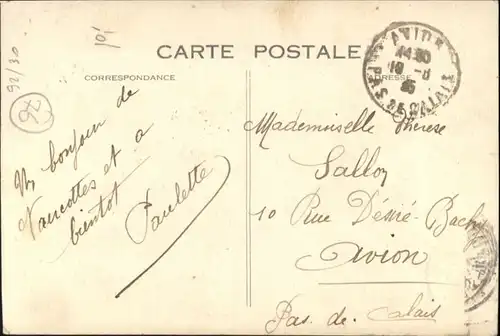 92/30
101
92
CARTE POSTALE
CORRESPONDANCE
ADRESSE
AVION
14:30
18 -8
35
PAS DE CALAIS
Un bonjour de
Vaucottes et a
bientot
Paulette
Mademoiselle Therese
Salloy
10 Rue Désiré-Bachy
Avion
Pas-de-Calais